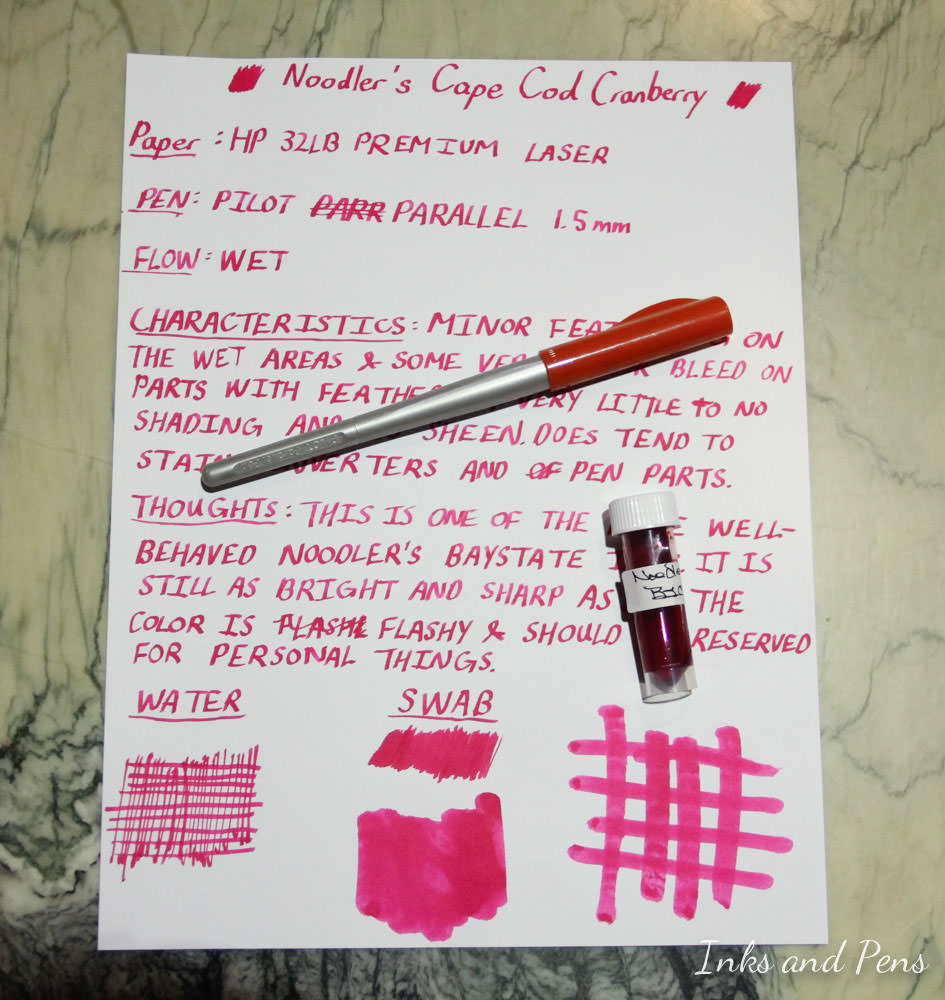 Noodler's Cape Cod Cranberry
Paper: HP 32LB PREMIUM LASER
PEN: PILOT PARR PARALLEL 1.5mm
FLOW: WET
CHARACTERISTICS: MINOR ON
THE WET AREAS & SOME BLEED ON
PARTS WITH VERY LITTLE to NO
SHADING AND SHEEN. DOES TEND TO
AND OF PEN PARTS.
THOUGHTS: THIS IS ONE OF THE WELL-
BEHAVED NOODLER'S BAYSTATE IT IS
STILL AS BRIGHT AND SHARP AS THE
COLOR IS FLASHY & SHOULD RESERVED
FOR PERSONAL THINGS.
WATER SWAB
Inks and Pens